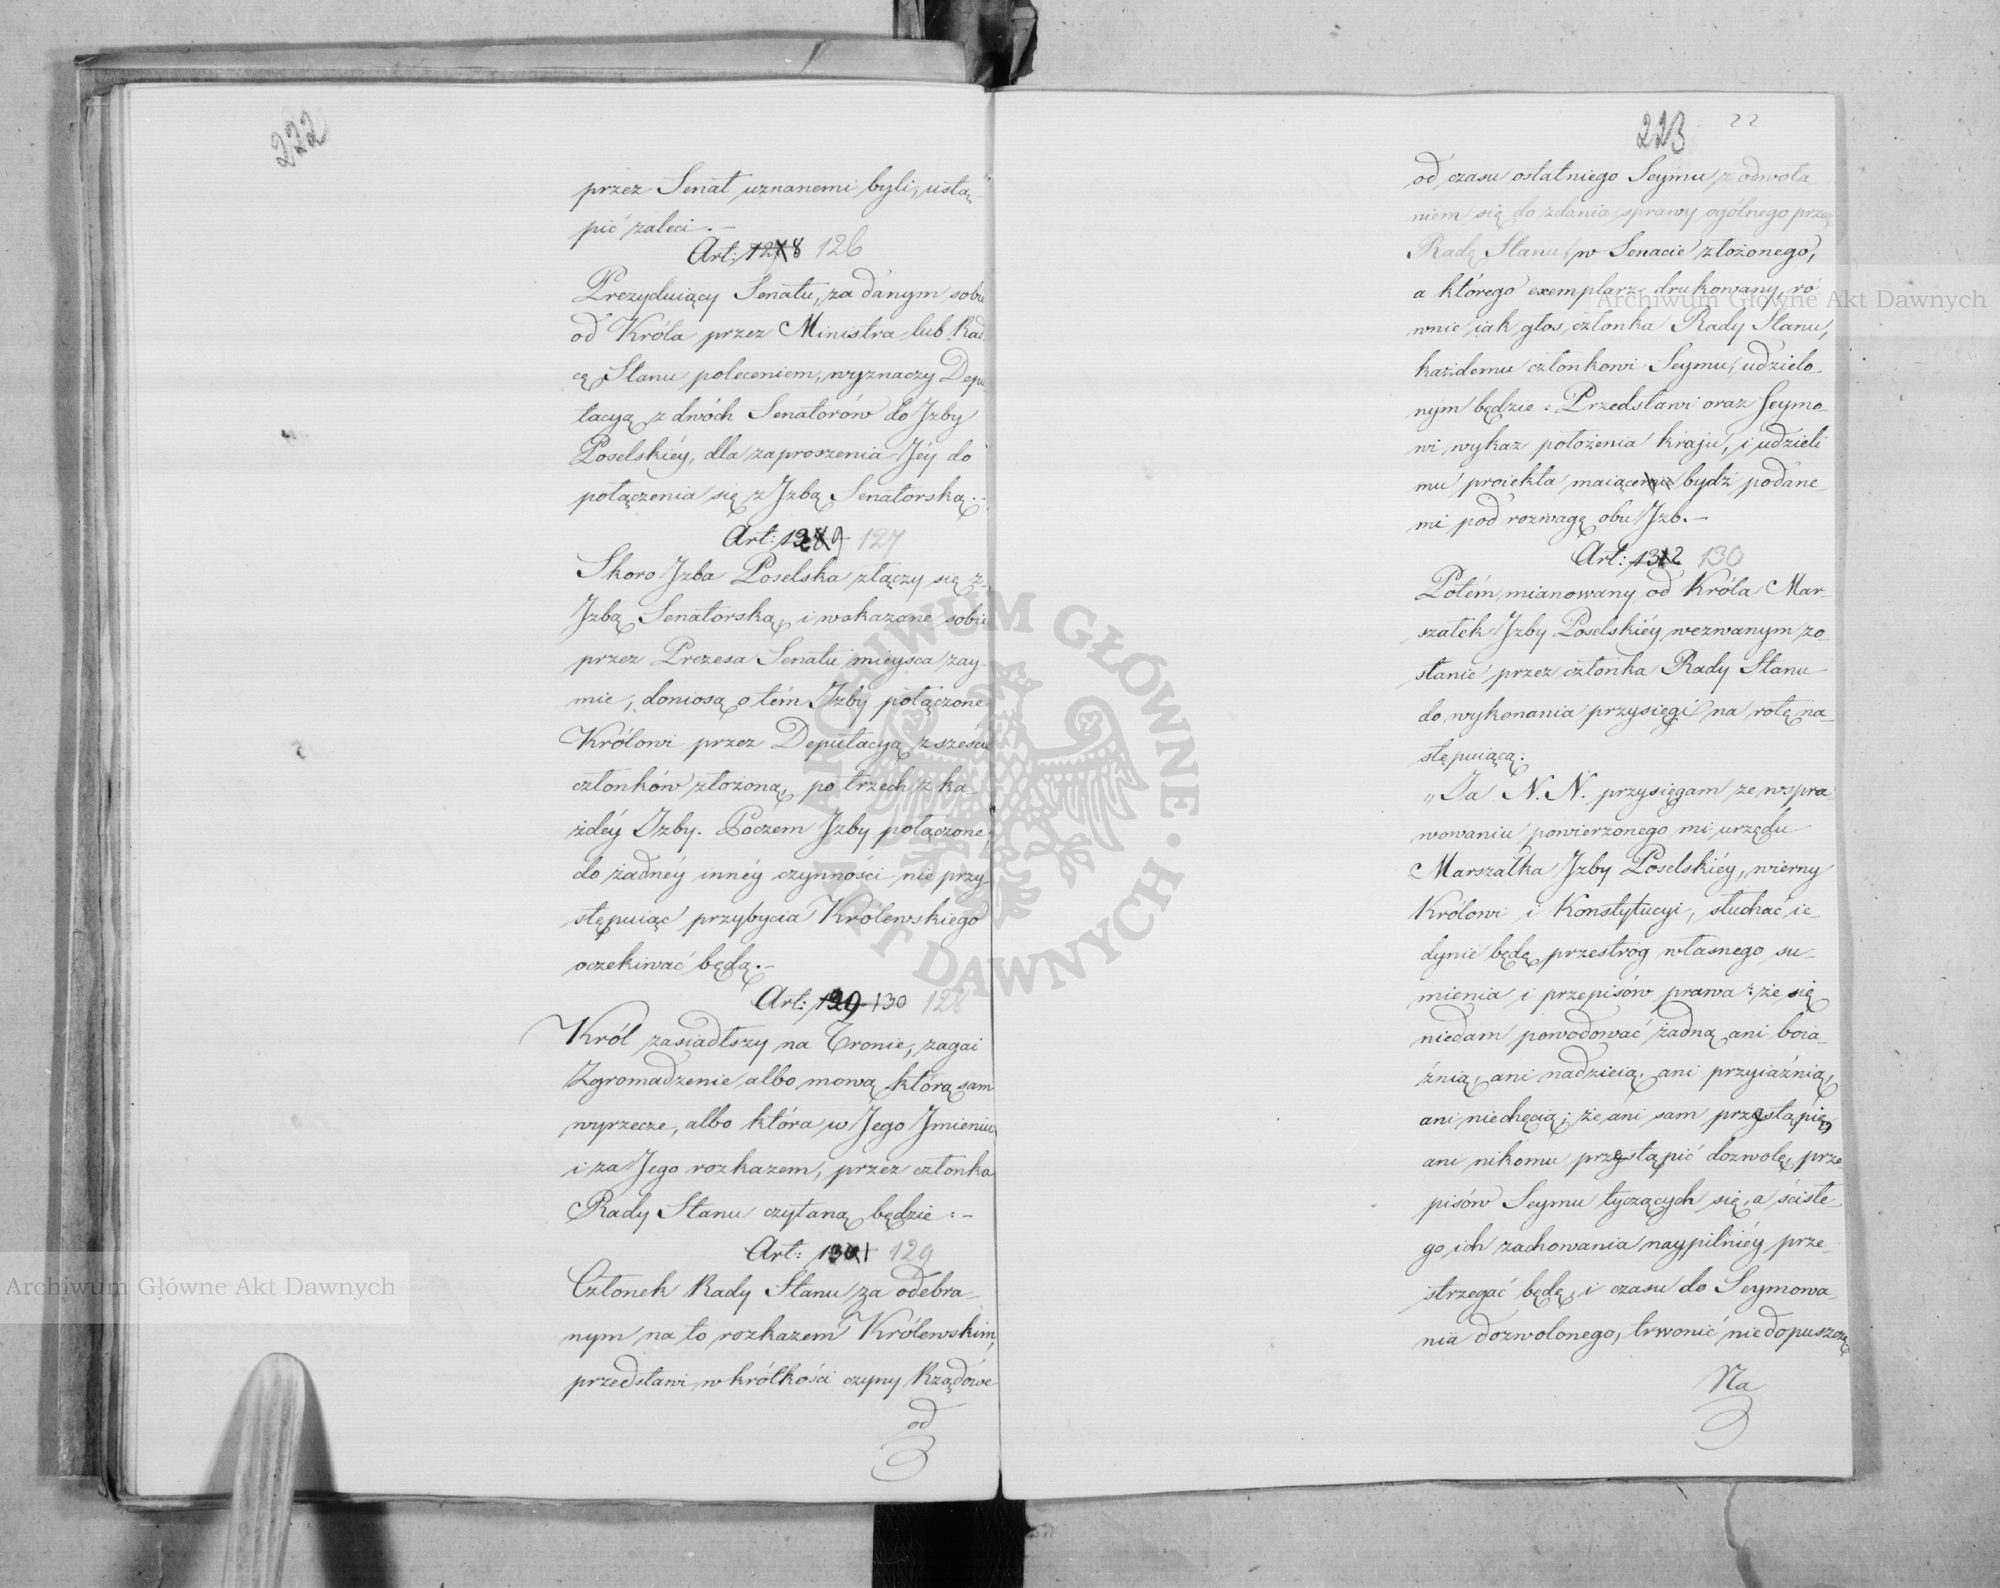 222
przez Senat uznanemi byli, ustą-
pić zaleci.—
Art: 1278 126
Prezyduiący Senatu, za danym sobie
od Króla przez Ministra lub Rad
cę Stanu poleceniem, wyznaczy Depu
tacyą z dwóch Senatorów do Izby
Poselskiéy, dla zaproszenia Jéy do
połączenia się z Izbą Senatorską.
Art: 1289 127
Skoro Izba Poselska złączy się z
Izbą Senatorską, i wskazane sobie
przez Prezesa Senatu mieysca zay-
mie, doniosą o tém Izby połączone
Królowi przez Deputacyą z sześciu
członków złożoną, po trzech z ka-
żdéy Izby. Poczem Izby połączone,
do żadnéy innéy czynności nie przy-
stępuiąc przybycia Królewskiego
oczekiwać będą.—
Art: 129 130 128
Król zasiadłszy na Tronie, zagai
Zgromadzenie albo mową którą sam
wyrzecze, albo która w Jego Imieniu
i za Jego rozkazem, przez członka
Rady Stanu czytaną będzie:—
Art: 1301 129
Członek Rady Stanu za odebra-
nym na to rozkazem Królewskim,
przedstawi w krótkości czyny Rządowe
od
223 22
od czasu ostatniego Seymu z odwoła
niem się do zdania sprawy ogólnego przez
Radę Stanu, w Senacie złożonego,
a którego exemplarz drukowany, ró
wnie iak głos członka Rady Stanu,
każdemu członkowi Seymu, udzielo-
nym będzie: Przedstawi oraz Seymo-
wi wykaz położenia kraju, i udzieli
mu proiekta maiące bydź podane-
mi pod rozwagę obu Izb.—
Art: 1312 130
Potém mianowany od Króla Mar-
szałek Izby Poselskiéy wezwanym zo-
stanie przez członka Rady Stanu
do wykonania przysięgi na rotę na-
stępuiącą:
„Ja N. N. przysięgam ze w spra-
wowaniu powierzonego mi urzędu
Marszałka Izby Poselskiéy, wierny
Królowi i Konstytucyi, słuchać ie-
dynie będę przestróg własnego su-
mienia i przepisów prawa: że się
niedam powodować żadną ani boia-
źnią, ani nadzieią, ani przyiaźnią,
ani niechęcią; że ani sam przestąpię,
ani nikomu przestąpić dozwolę, prze-
pisów Seymu tyczących się, a ściste-
go ich zachowania naypilniéy prze-
strzegać będę, i czasu do Seymowa-
nia dozwolonego, trwonić niedopuszczę
Na
Archiwum Główne Akt Dawnych
Archiwum Główne Akt Dawnych
ARCHIWUM GŁÓWNE · AKT DAWNYCH ·